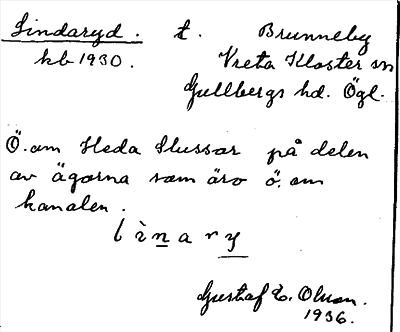 Lindaryd. t. Brunneby
kb 1930. Vreta Kloster sn
Gullbergs hd. Ögl.
Ö. om Heda slussar på delen
av ägorna som äro ö. om
kanalen.
l ì n a r y
Gustaf E. Olsson.
1936.